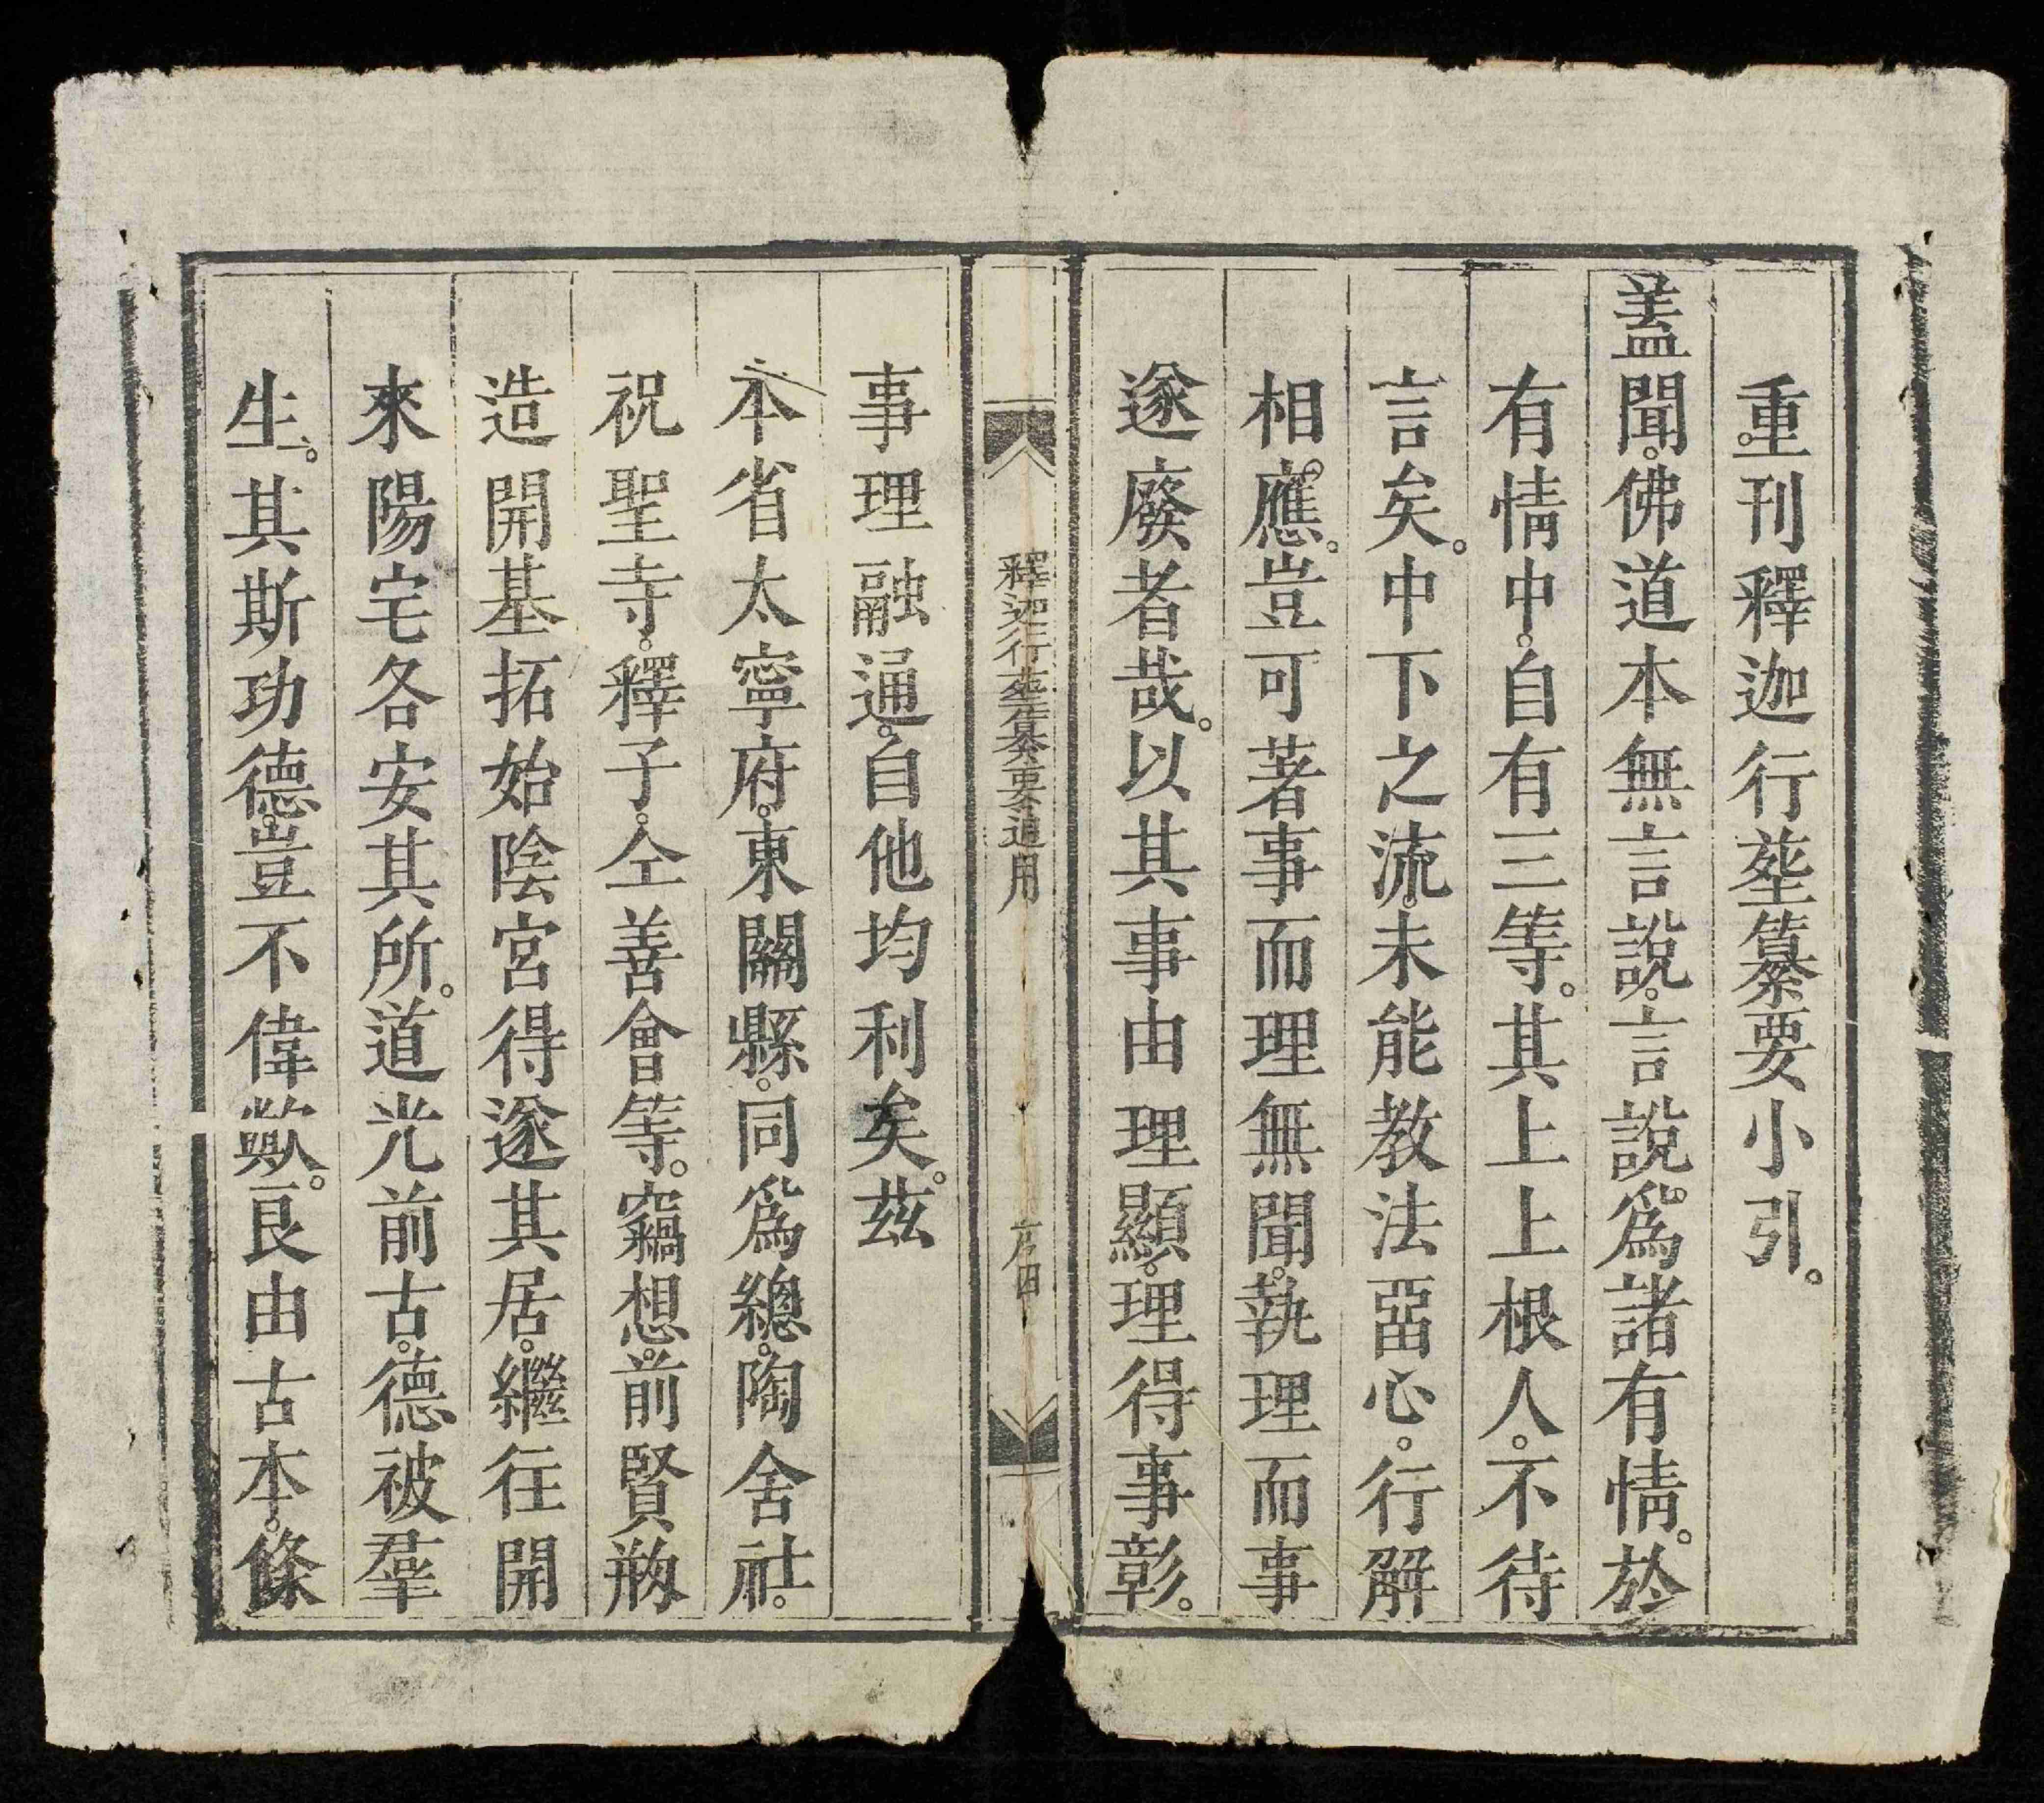 重刊釋迦行㙻纂要小引。
蓋聞。佛道本無言說。言說。爲諸有情。於
有情中。自有三等。其上上根人。不待
言矣。中下之流。未能教法㓙心。行解
相應。豈可著事而理無聞。執理而事
遂廢者哉。以其事由理顯。理得事彰。
釋迦行㙻纂要通用
序四
事理融通。自他均利矣。茲
本省太寧府。東關縣。同爲總。陶舍社。
祝聖寺。釋子。仝善會等。竊想。前賢剏
造開基拓始陰宮得遂其居。繼往開
來陽宅各安其所。道光前古。德被羣
生。其斯功德。豈不偉歟。良由古本。條